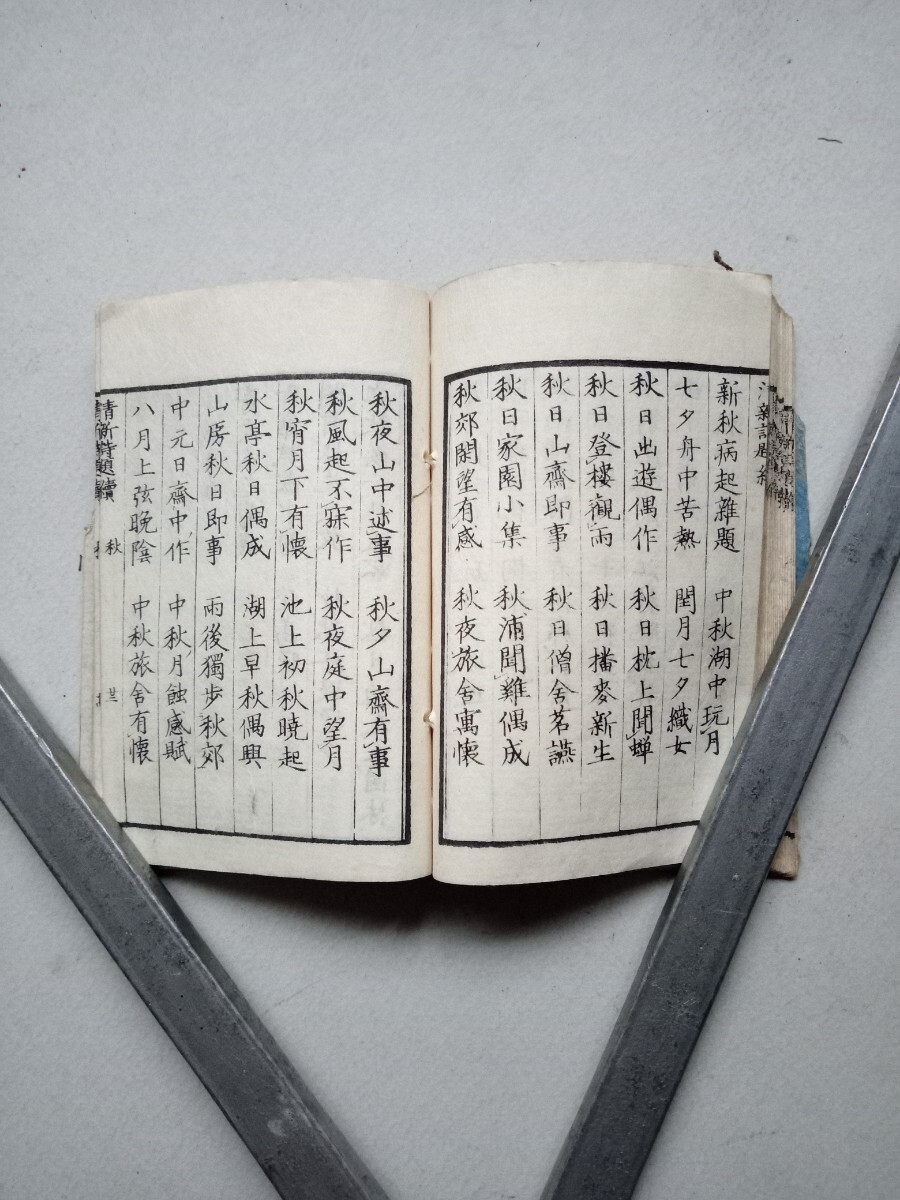 新秋病起雜題 中秋湖中玩月
七夕舟中苦熱 閏月七夕織女
秋日出遊偶作 秋日枕上聞蟬
秋日登樓觀雨 秋日播麥新生
秋日山齋即事 秋日僧舍茗讌
秋日家園小集 秋浦聞雞偶成
秋郊閑望有感 秋夜旅舍寓懷
秋夜山中述事 秋夕山齋有事
秋風起不寐作 秋夜庭中望月
秋宵月下有懷 池上初秋曉起
水亭秋日偶成 湖上早秋偶興
山房秋日即事 雨後獨步秋郊
中元日齋中作 中秋月蝕感賦
八月上弦晚陰 中秋旅舍有懷
清新詩題續 秋